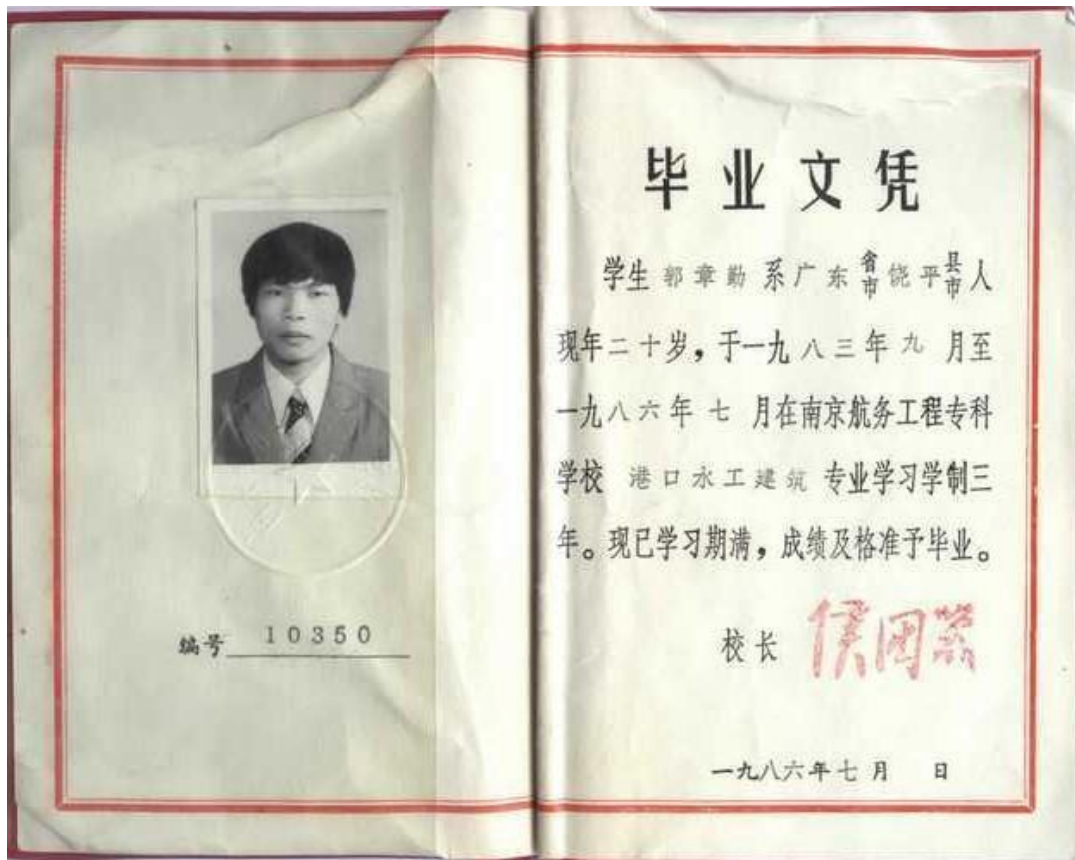 编号 10350
毕业文凭
学生 郭章勤 系广东省市饶平县市人
现年二十岁，于一九八三年九月至
一九八六年七月在南京航务工程专科
学校 港口水工建筑 专业学习学制三
年。现已学习期满，成绩及格准予毕业。
校长
一九八六年七月 日